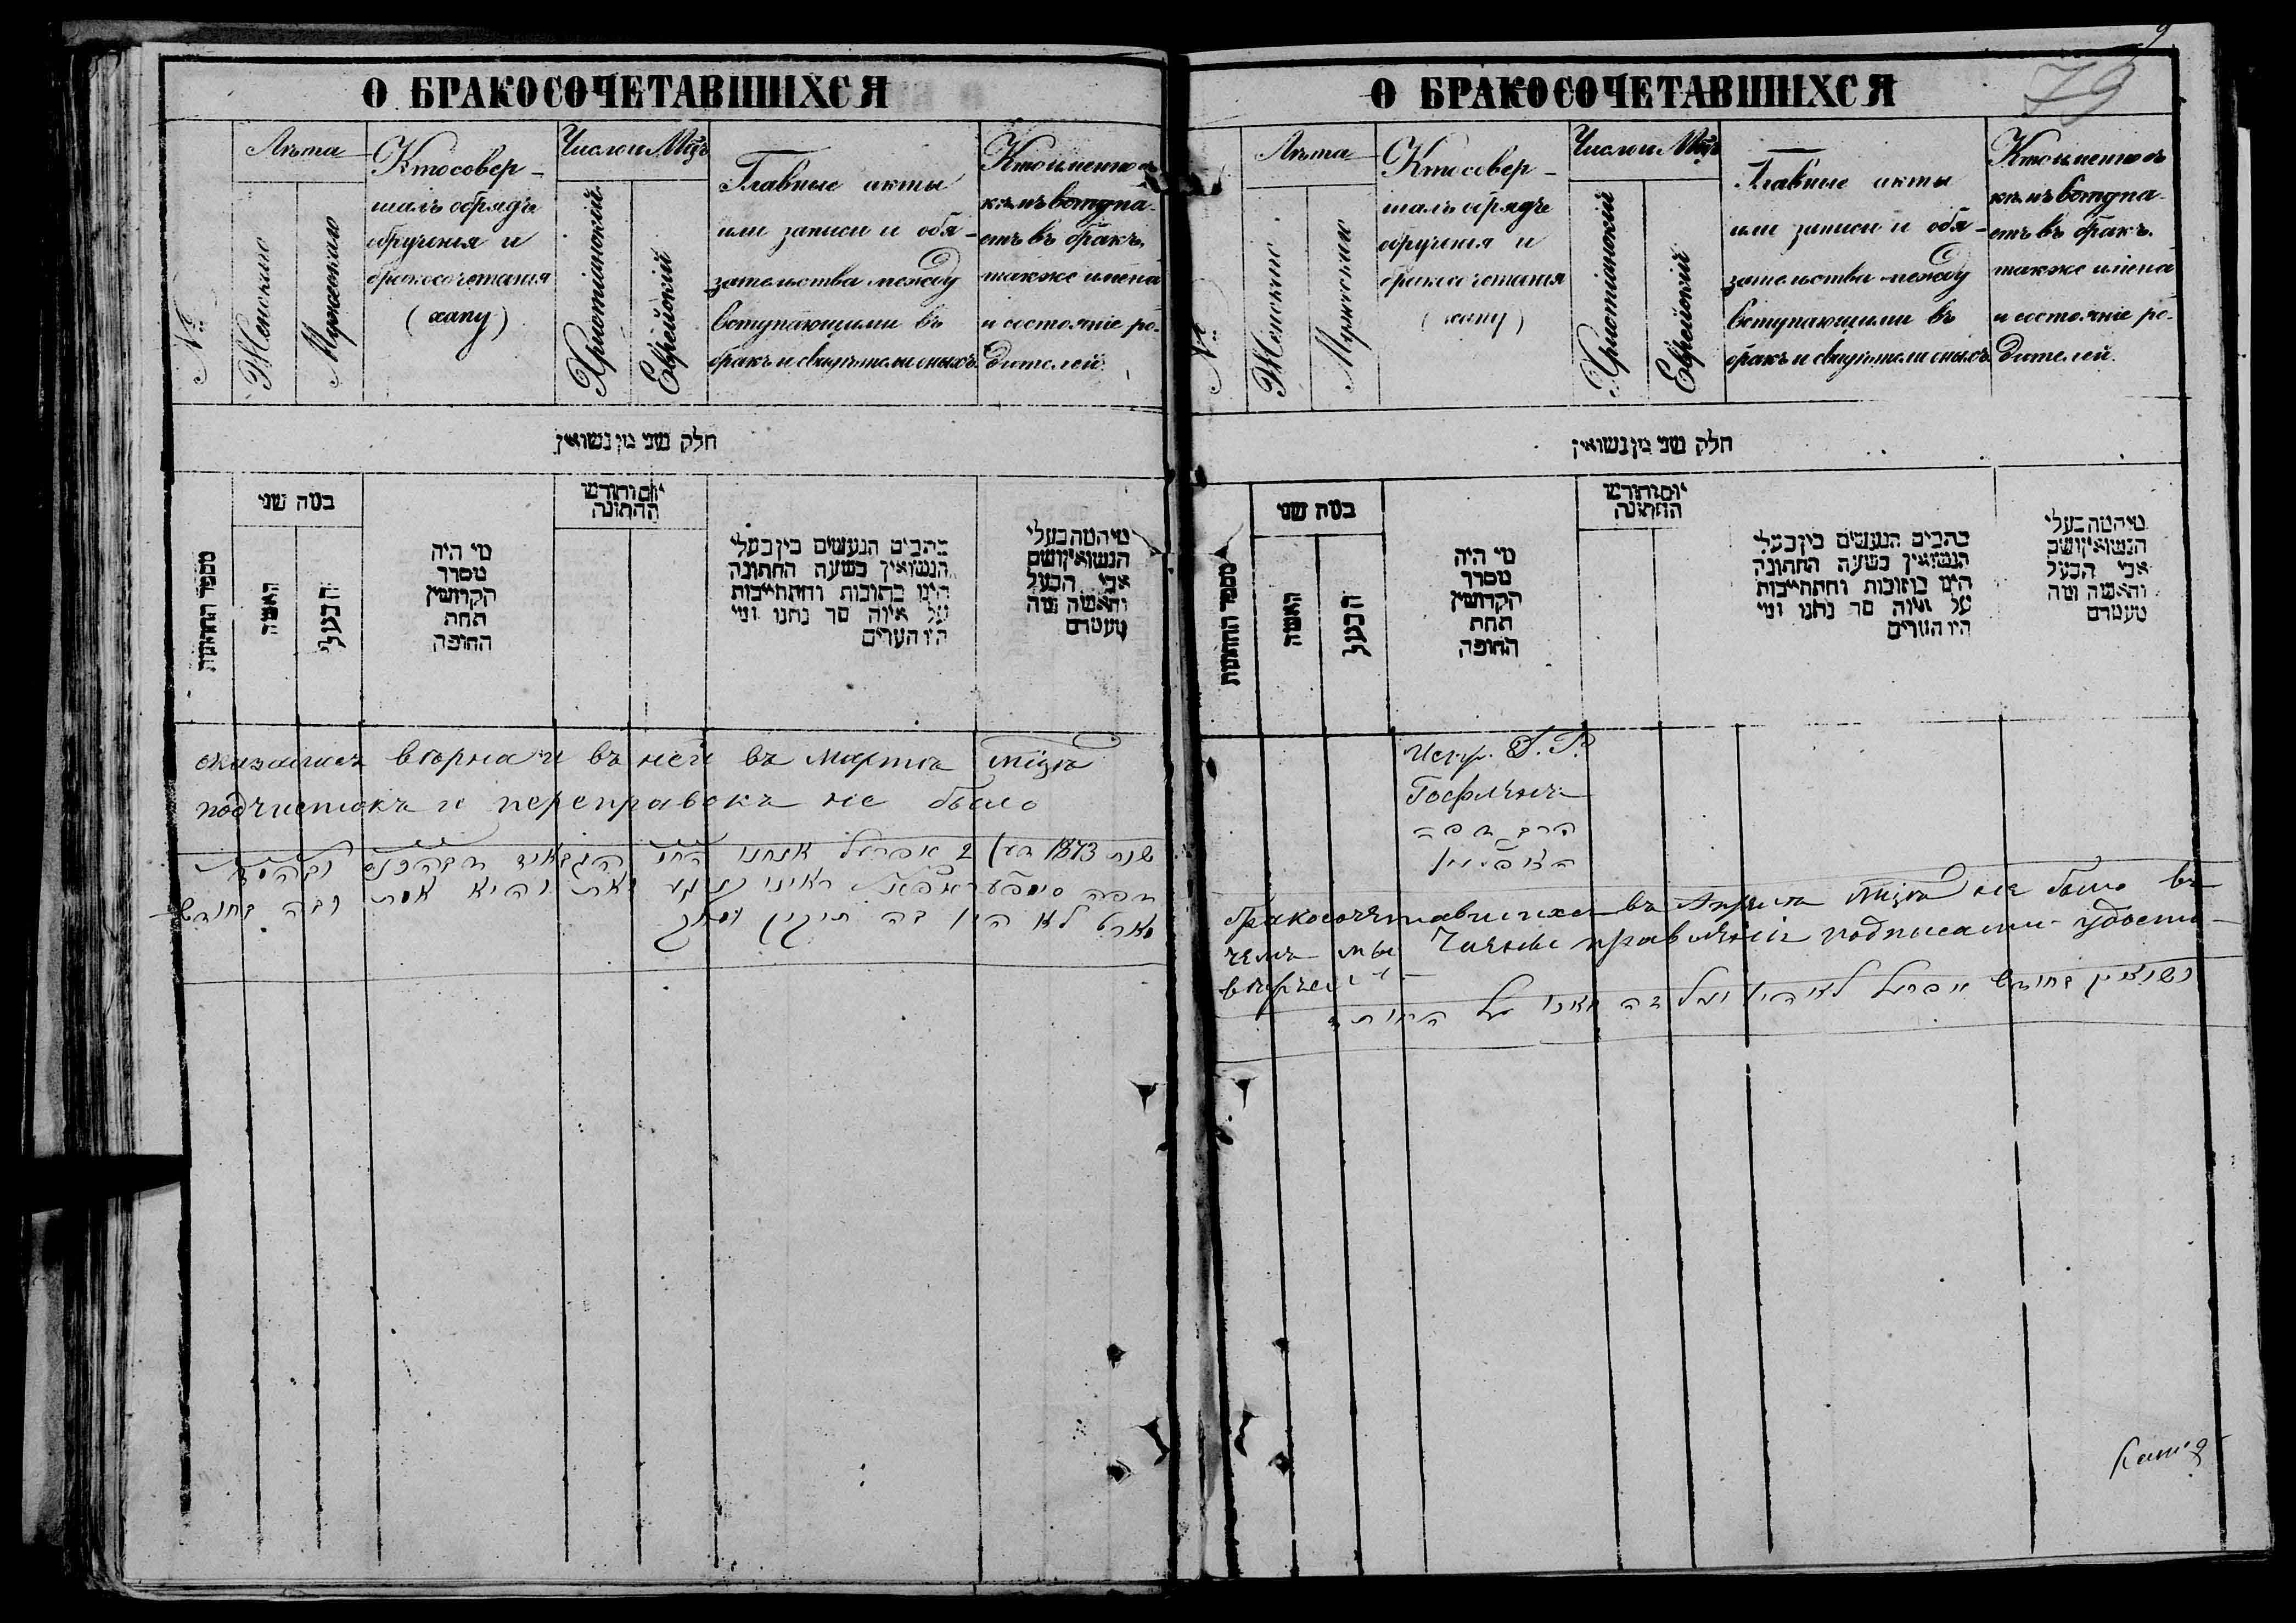 О БРАКОСОЧЕТАВШИХСЯ
№
Лѣта
Женскаго
Мужескаго
Кто совер-
шалъ обрядъ
обрученія и
бракосочетанія
(хапу)
Число и Мцъ
Христіанскій
Еврейскій
Главные акты
или записи и обя-
зательства между
вступающими въ
бракъ и свидѣтели оныхъ.
Кто именно съ
кѣмъ вступа-
етъ въ бракъ.
также имена
и состояніе ро-
дителей.
חלק שני מן נשואין
מספר החתונות
כמה שני
האשה
הבעל
מי היה
מסדר
הקדושין
תחת
החופה
יום וחודש
החתונה
כתבים הנעשים בין בעלי
הנשואין בשעת החתונה
היינו כתובות והתחייבות
על איזה סך נתנו ומי
היו העדים
מי המה בעלי
הנשואין ושם
אבי הבעל
והאשה ומה
מעמדם
оказалась вѣрна и въ ней въ мартѣ мцѣ
подчистокъ и переправокъ не было
שנת 1873 2 אפריל אנחנו
לא היו בה
О БРАКОСОЧЕТАВШИХСЯ
79
№
Лѣта
Женскаго
Мужескаго
Кто совер-
шалъ обрядъ
обрученія и
бракосочетанія
(хапу)
Число и Мцъ
Христіанскій
Еврейскій
Главные акты
или записи и обя-
зательства между
вступающими въ
бракъ и свидѣтели оныхъ.
Кто именно съ
кѣмъ вступа-
етъ въ бракъ.
также имена
и состояніе ро-
дителей.
חלק שני מן נשואין
מספר החתונות
כמה שני
האשה
הבעל
מי היה
מסדר
הקדושין
תחת
החופה
יום וחודש
החתונה
כתבים הנעשים בין בעלי
הנשואין בשעת החתונה
היינו כתובות והתחייבות
על איזה סך נתנו ומי
היו העדים
מי המה בעלי
הנשואין ושם
אבי הבעל
והאשה ומה
מעמדם
Испр. Г. Р.
Гофманъ
бракосочетавшихся въ Апрѣлѣ мцѣ не было въ
чемъ мы Члены правленія подписами удосто-
вѣряемъ
נשואין בחודש אפריל לא היו